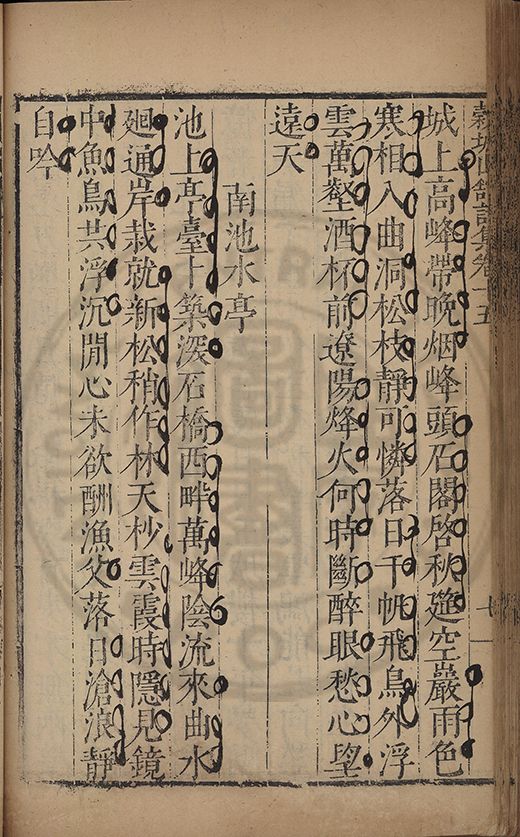 山舘詩集卷十五
七
城上高峰帶晚烟峰頭石閣啓秋筵空巖雨色
寒相入曲洞松枝靜可憐落日千帆飛鳥外浮
雲萬壑酒杯前遼陽烽火何時斷醉眼愁心望
遠天
南池水亭
池上亭臺卜築深石橋西畔萬峰陰流來曲水
廻通岸栽就新松稍作林天杪雲霞時隱見鏡
中魚鳥共浮沉閒心未欲酬漁父落日滄浪靜
自吟